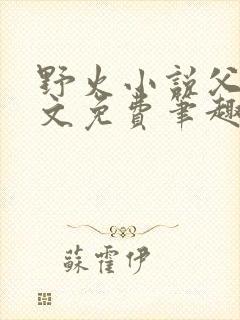 野火小説父
文免費筆趣
蘇霍伊